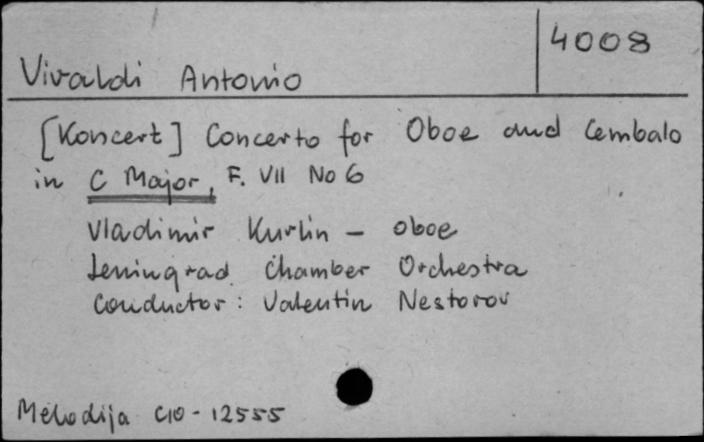 4008
Vivaldi Antonio
[Koncert] Concerto for Oboe and Cembalo
in C Major, F. VII No 6
Vladimir Kurlin - oboe
Leningrad Chamber Orchestra
conductor: Valentin Nestorov
Melodija C10-12555